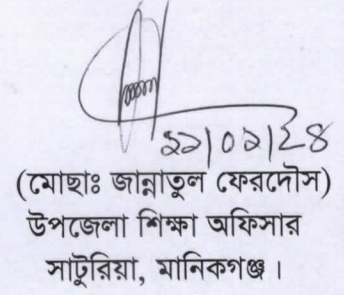 ২১|০১|২৪
(মোছাঃ জান্নাতুল ফেরদৌস)
উপজেলা শিক্ষা অফিসার
সাটুরিয়া, মানিকগঞ্জ।